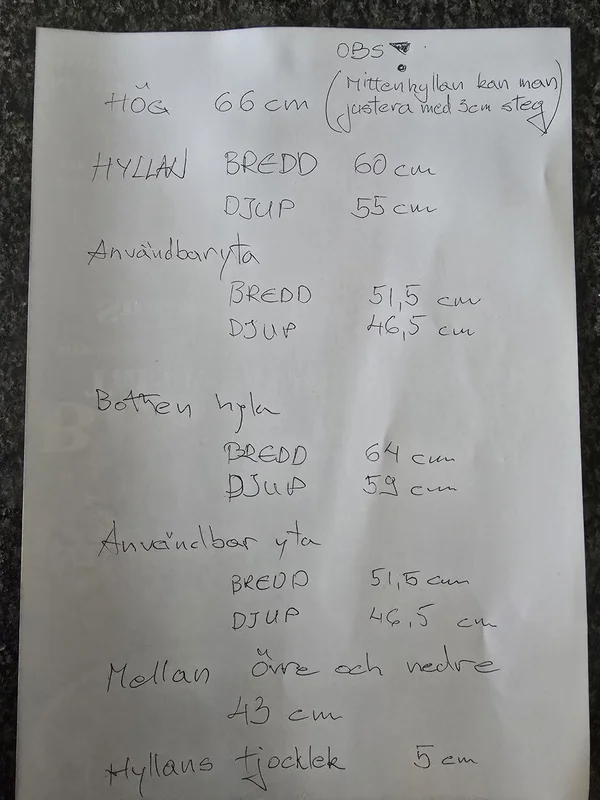 OBS!
HÖG 66 cm (Mittenhyllan kan man
justera med 3cm steg)
HYLLAN BREDD 60 cm
DJUP 55 cm
Användbar yta
BREDD 51,5 cm
DJUP 46,5 cm
Botten hyla
BREDD 64 cm
DJUP 59 cm
Användbar yta
BREDD 51,5 cm
DJUP 46,5 cm
Mellan Övre och nedre
43 cm
Hyllans tjocklek 5 cm